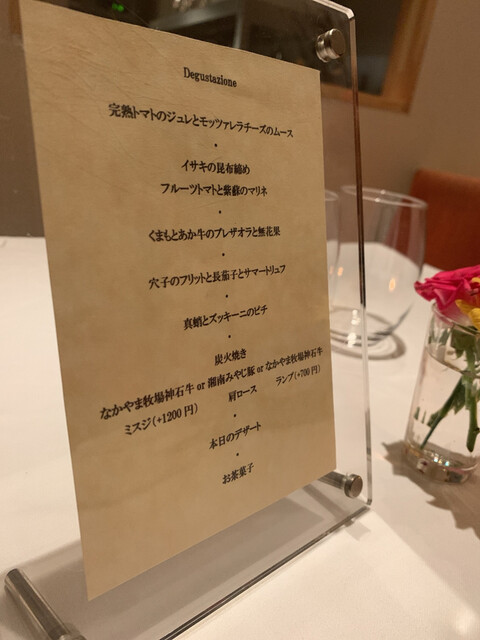 Degustazione
完熟トマトのジュレとモッツァレラチーズのムース
•
イサキの昆布締め
フルーツトマトと紫蘇のマリネ
•
くまもとあか牛のブレザオラと無花果
•
穴子のフリットと長茄子とサマートリュフ
•
真蛸とズッキーニのピチ
•
炭火焼き
なかやま牧場神石牛 or 湘南みやじ豚 or なかやま牧場神石牛
ミスジ(+1200円) 肩ロース ランプ(+700円)
•
本日のデザート
•
お茶菓子